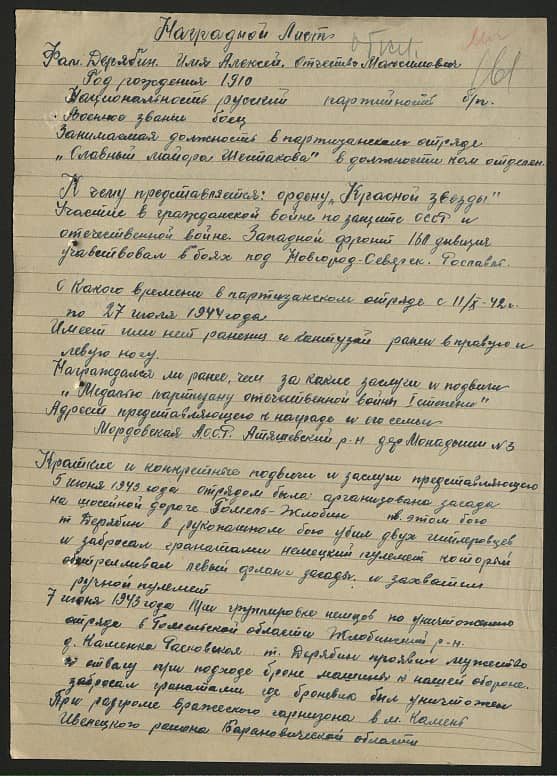 Наградной Лист
Фам. Дерябин. Имя Алексей. отчество Максимович
Год рождения 1910
Национальность русский партийность б/п.
Военное звание боец
Занимаемая должность в партизанском отряде
„Славный майора Шестакова" в должности ком отделен.
К чему представляется: ордену „Красной звезды"
Участие в гражданской войне по защите СССР и
отечественной войне. Западной фронт 160 дивизия
учавствовал в боях под Новгород-Севярск. Рославль.
С Какого времени в партизанском отряде с 11/X-42г.
по 27 июля 1944 годы
Имеет или нет ранения и контузий ранен в правую и
левую ногу.
Награждался ли ранее, чем за какие заслуги и подвиги
„Медалью партизану отечественной войны I степени"
Адрест представляющего к награде и его семьи
Мордовская АССР. Атяшевский р-н дер Монадыши №3
Краткие и конкретного подвиги и заслуги представляющего
5 июня 1943 года отрядом была арганизована засада
на шосейной дороге Гомель-Жлобин в этом бою
т Дерябин в рукопашном бою убил двух гитлеровцев
и забросал гранатами немецкий пулемет который
обстреливал левый фланг засады. и захватил
ручной пулемет
7 июня 1943 года При группировке немцев по уничтожению
отряда в Гомельской области Жлобинский р-н.
д. Каменка т. Дерябин проявил мужество
и отвагу при подходе броне машины к нашей обороне.
забросал гранатами где броневик был уничтожен
При разгроме вражеского гарнизона в м. Камень
Ивенецкого района Барановической области